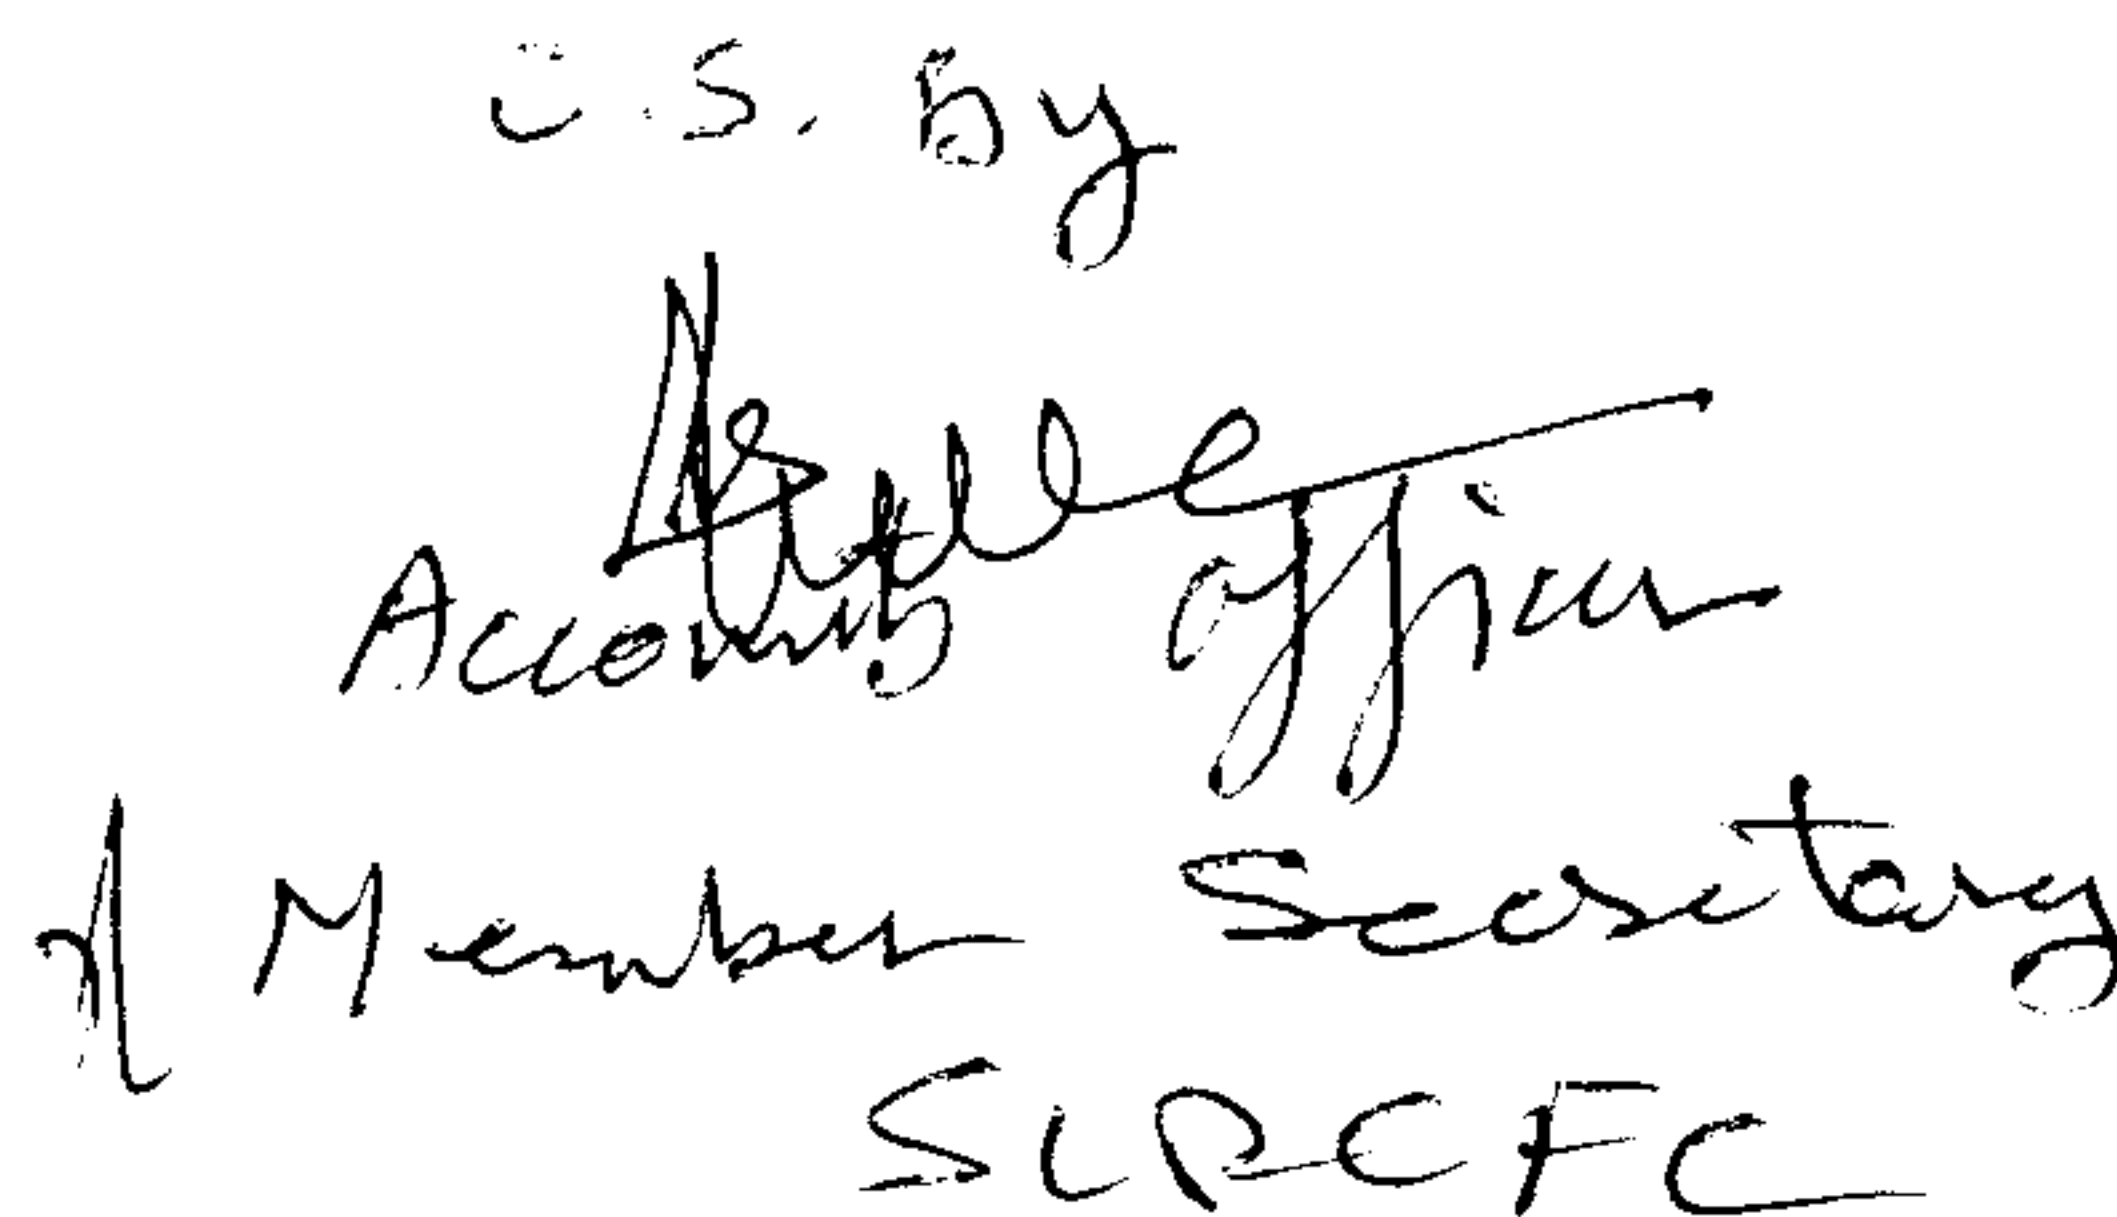 C.S. By
Accounts Officer
Member Secretary
SLRCFC